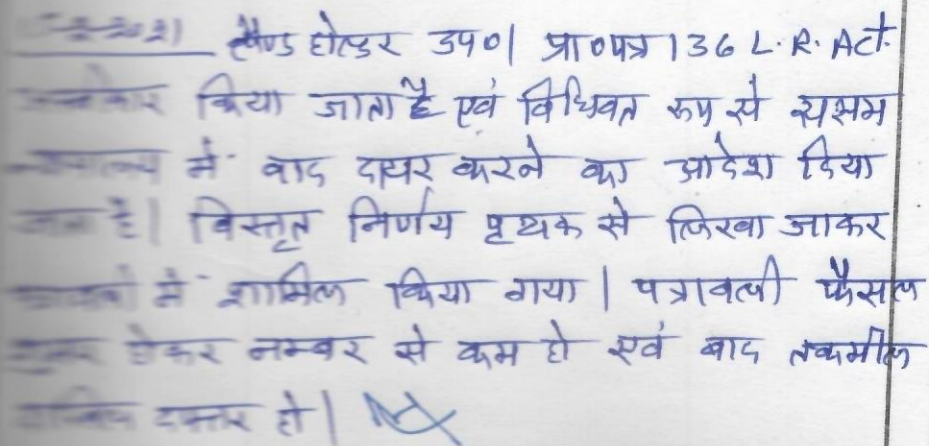 लैण्ड होल्डर उप०| प्रा०पत्र 136 L.R. Act.
किया जाता है एवं विधिवत रूप से सक्षम
में वाद दायर करने का आदेश दिया
है| विस्तृत निर्णय पृथक से लिखा जाकर
में शामिल किया गया | पत्रावली फैसल
होकर नम्बर से कम हो एवं बाद तकमील
दफ्तर हो |